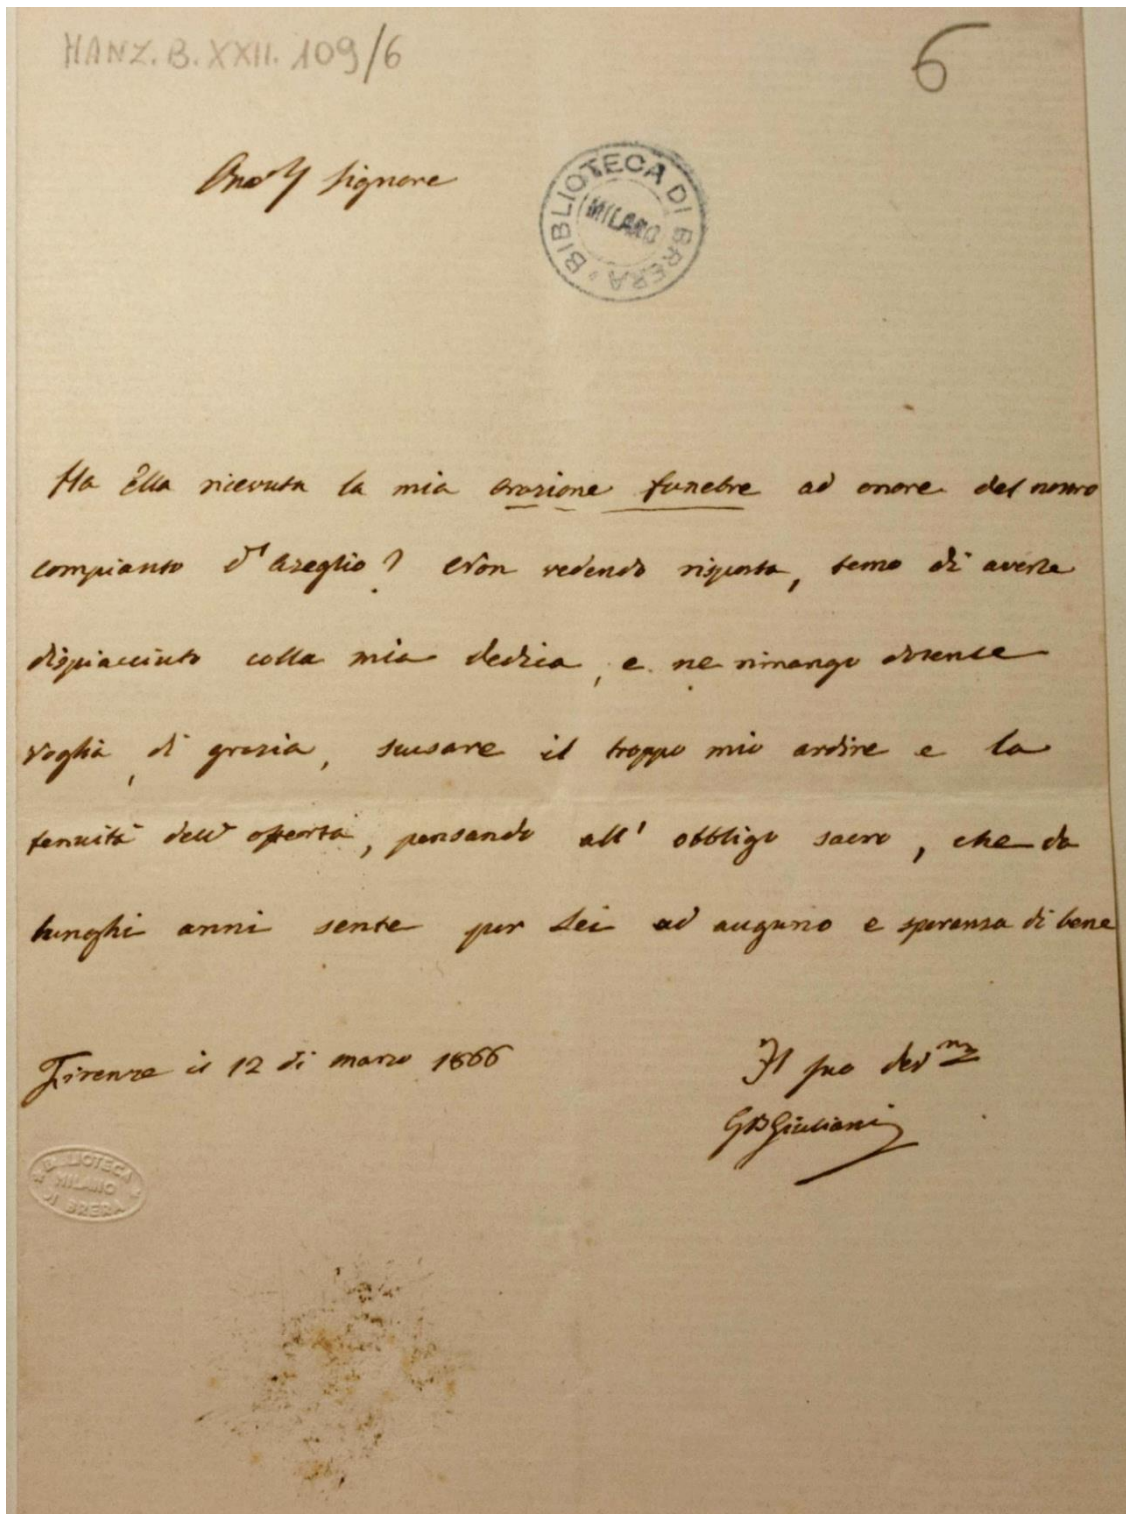 MANZ. B. XXII. 109/6
6
Signore
BIBLIOTECA DI BRERA
MILANO
Ha Ella ricevuta la mia orazione funebre ad onore del nostro
compianto d'Azeglio? Non vedendo risposta, temo di averle
dispiacciuto colla mia dedica, e ne rimango dolente
Voglia, di grazia, scusare il troppo mio ardire e la
tenuità dell'offerta, pensando all'obbligo sacro, che da
lunghi anni sente per Lei ad augurio e speranza di bene
Firenze il 12 di marzo 1866
Il suo dev.mo
GBGiuliani
BIBLIOTECA
MILANO
DI BRERA